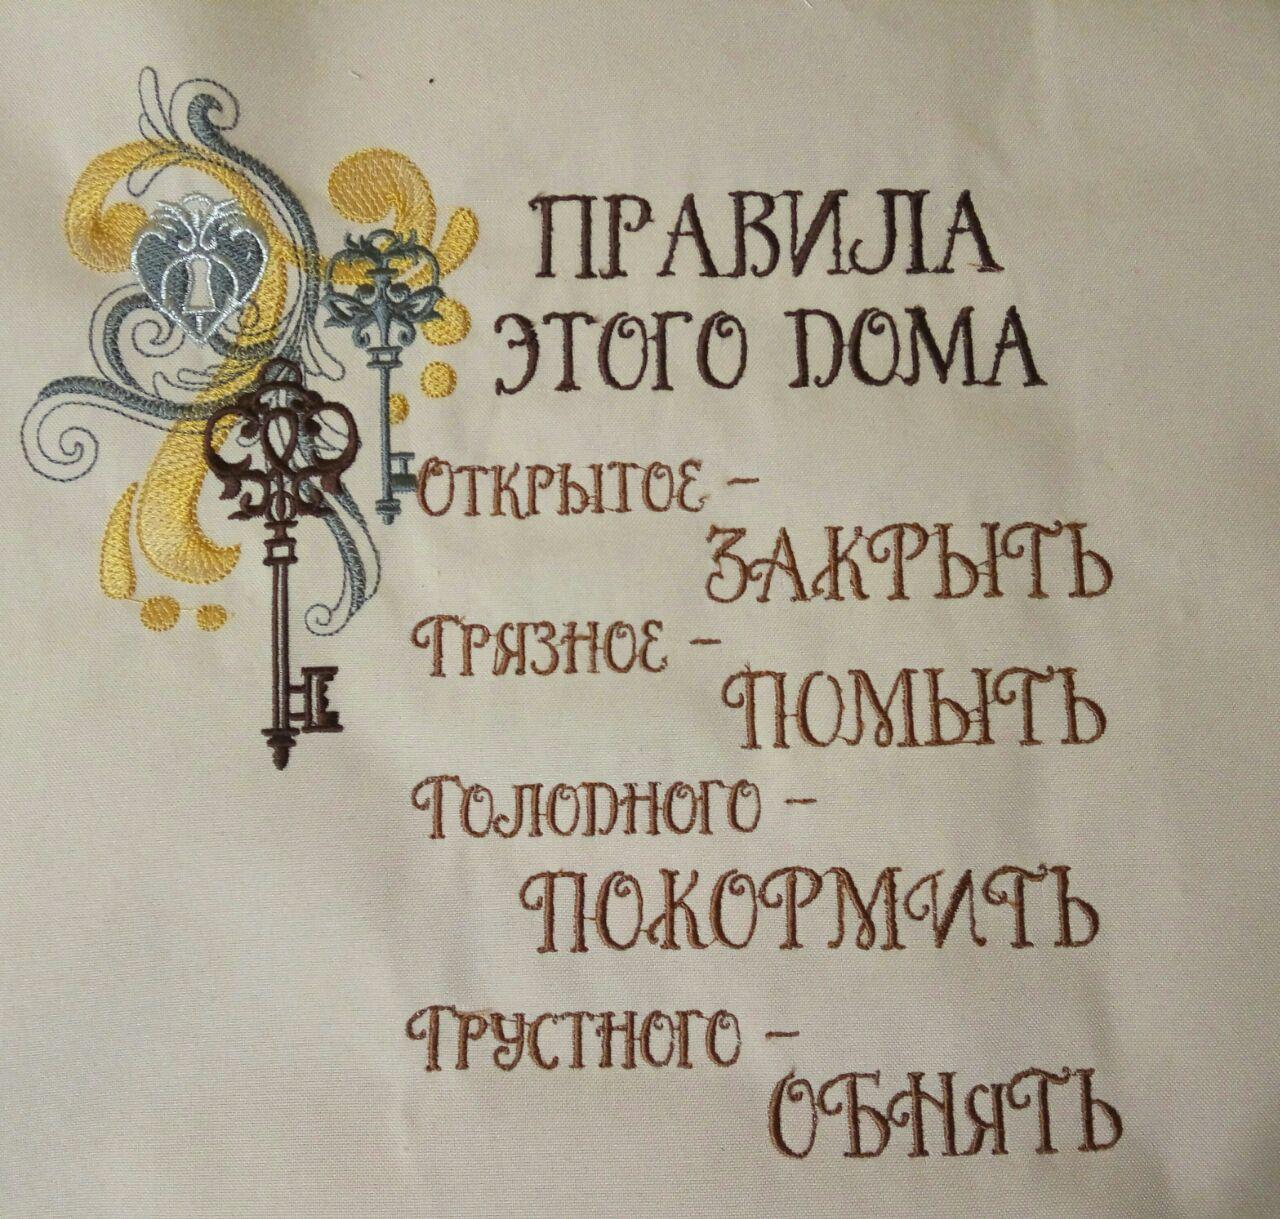 ПРАВИЛА
ЭТОГО ДОМА
ОТКРЫТОЕ –
ЗАКРЫТЬ
ГРЯЗНОЕ –
ПОМЫТЬ
ГОЛОДНОГО –
ПОКОРМИТЬ
ГРУСТНОГО –
ОБНЯТЬ